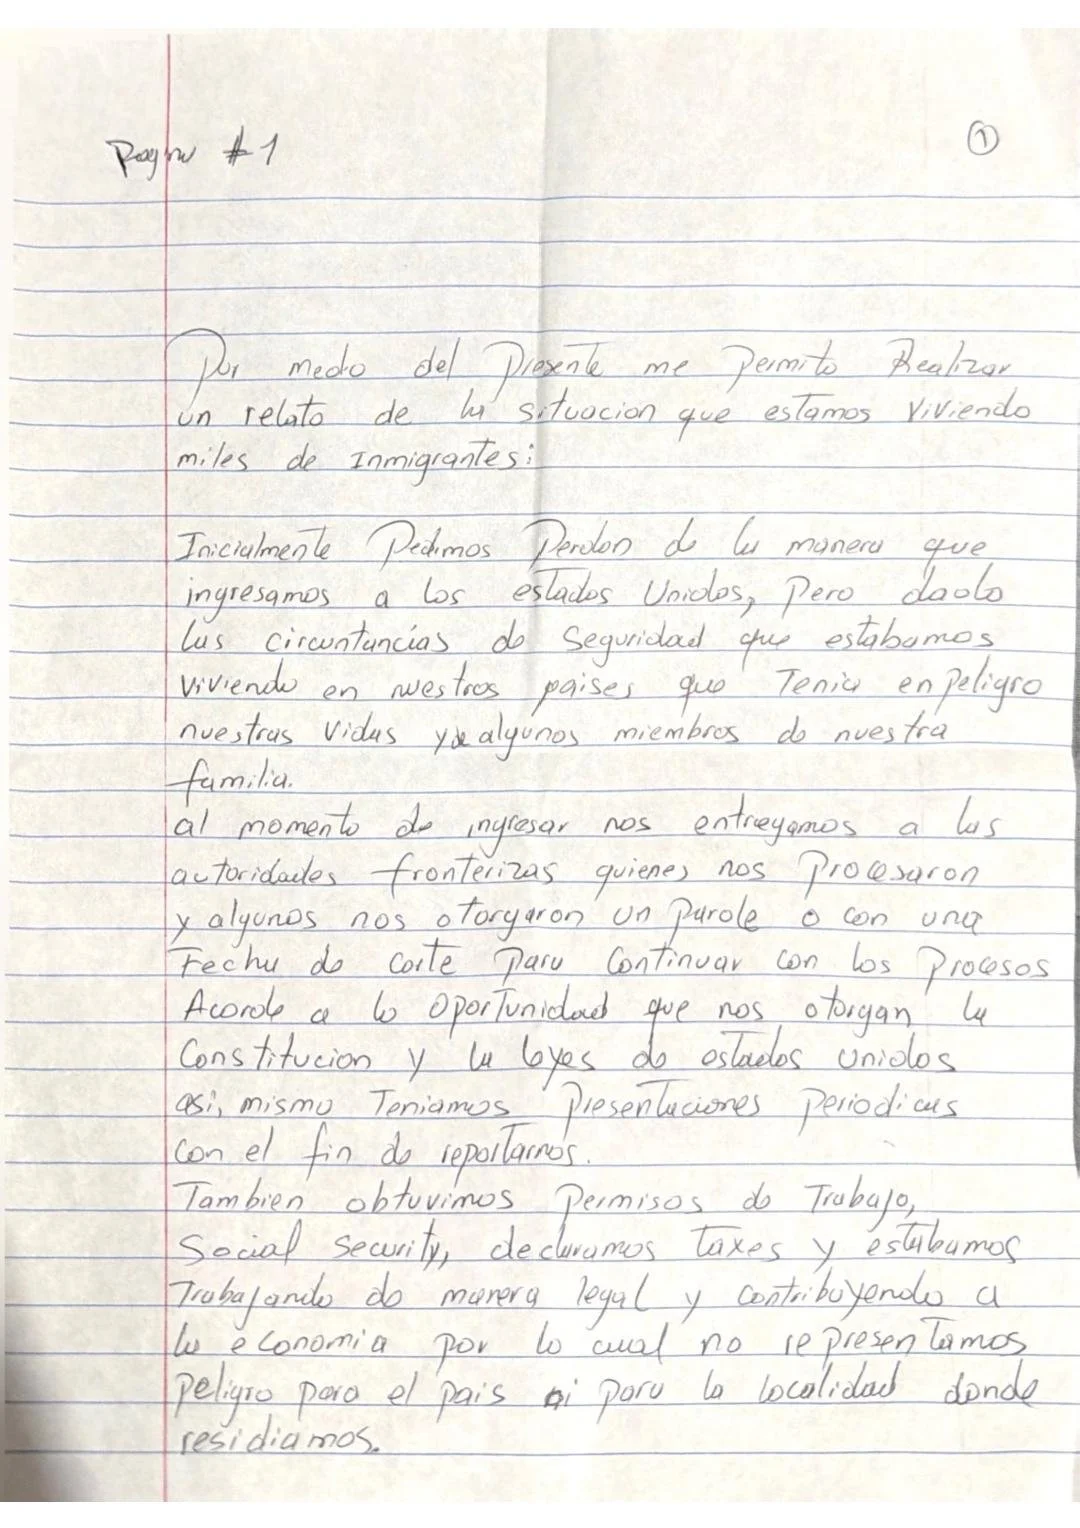 Pagina #1
1
Por medio del Presente me Permito Realizar
un relato de la situacion que estamos viviendo
miles de Inmigrantes:
Inicialmente Pedimos Perdon de la manera que
ingresamos a los estados Unidos, Pero dado
las circuntancias de Seguridad que estabamos
viviendo en nuestros paises que Tenia en peligro
nuestras vidas y de algunos miembros de nuestra
familia.
al momento de ingresar nos entregamos a las
autoridades fronterizas quienes nos Procesaron
y algunos nos otorgaron un parole o con una
Fecha de Corte Para Continuar con los Procesos
Acorde a lo oporTunidad que nos otorgan la
Constitucion y la leyes de estados unidos
asi, mismo Teniamos Presentaciones Periodicas
con el fin de reportarnos.
Tambien obtuvimos Permisos de Trabajo,
Social Security, declaramos Taxes y estabamos
Trabajando de manera legal y contribuyendo a
la economia por lo cual no representamos
peligro para el pais ni para la localidad donde
residiamos.